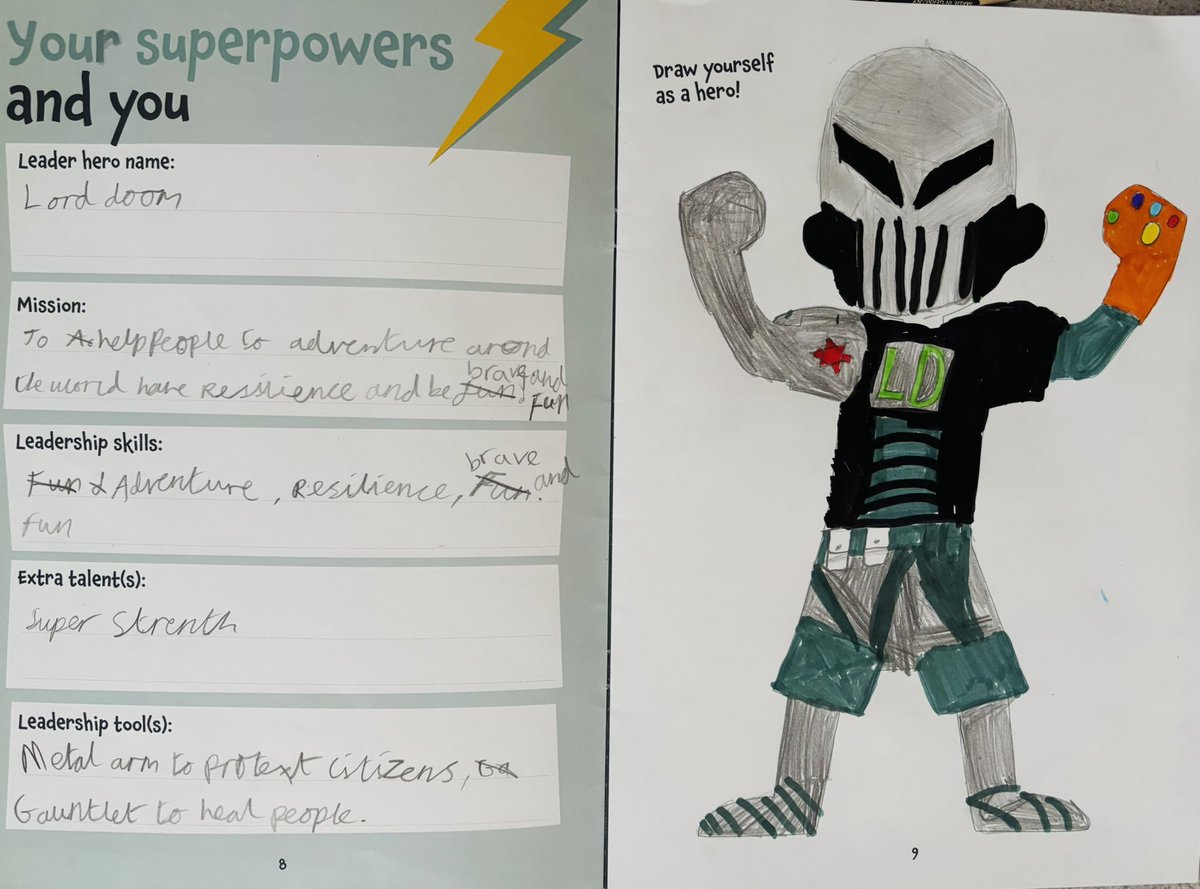 Your superpowers
and you
Leader hero name:
Lord doom
Mission:
To help People to adventure around
the world have Resilience and be brave and
fun
Leadership skills:
Adventure, Resilience, brave and
fun
Extra talent(s):
Super Strenth
Leadership tool(s):
Metal arm to protext citizens,
Gauntlet to heal people.
8
Draw yourself
as a hero!
LD
9